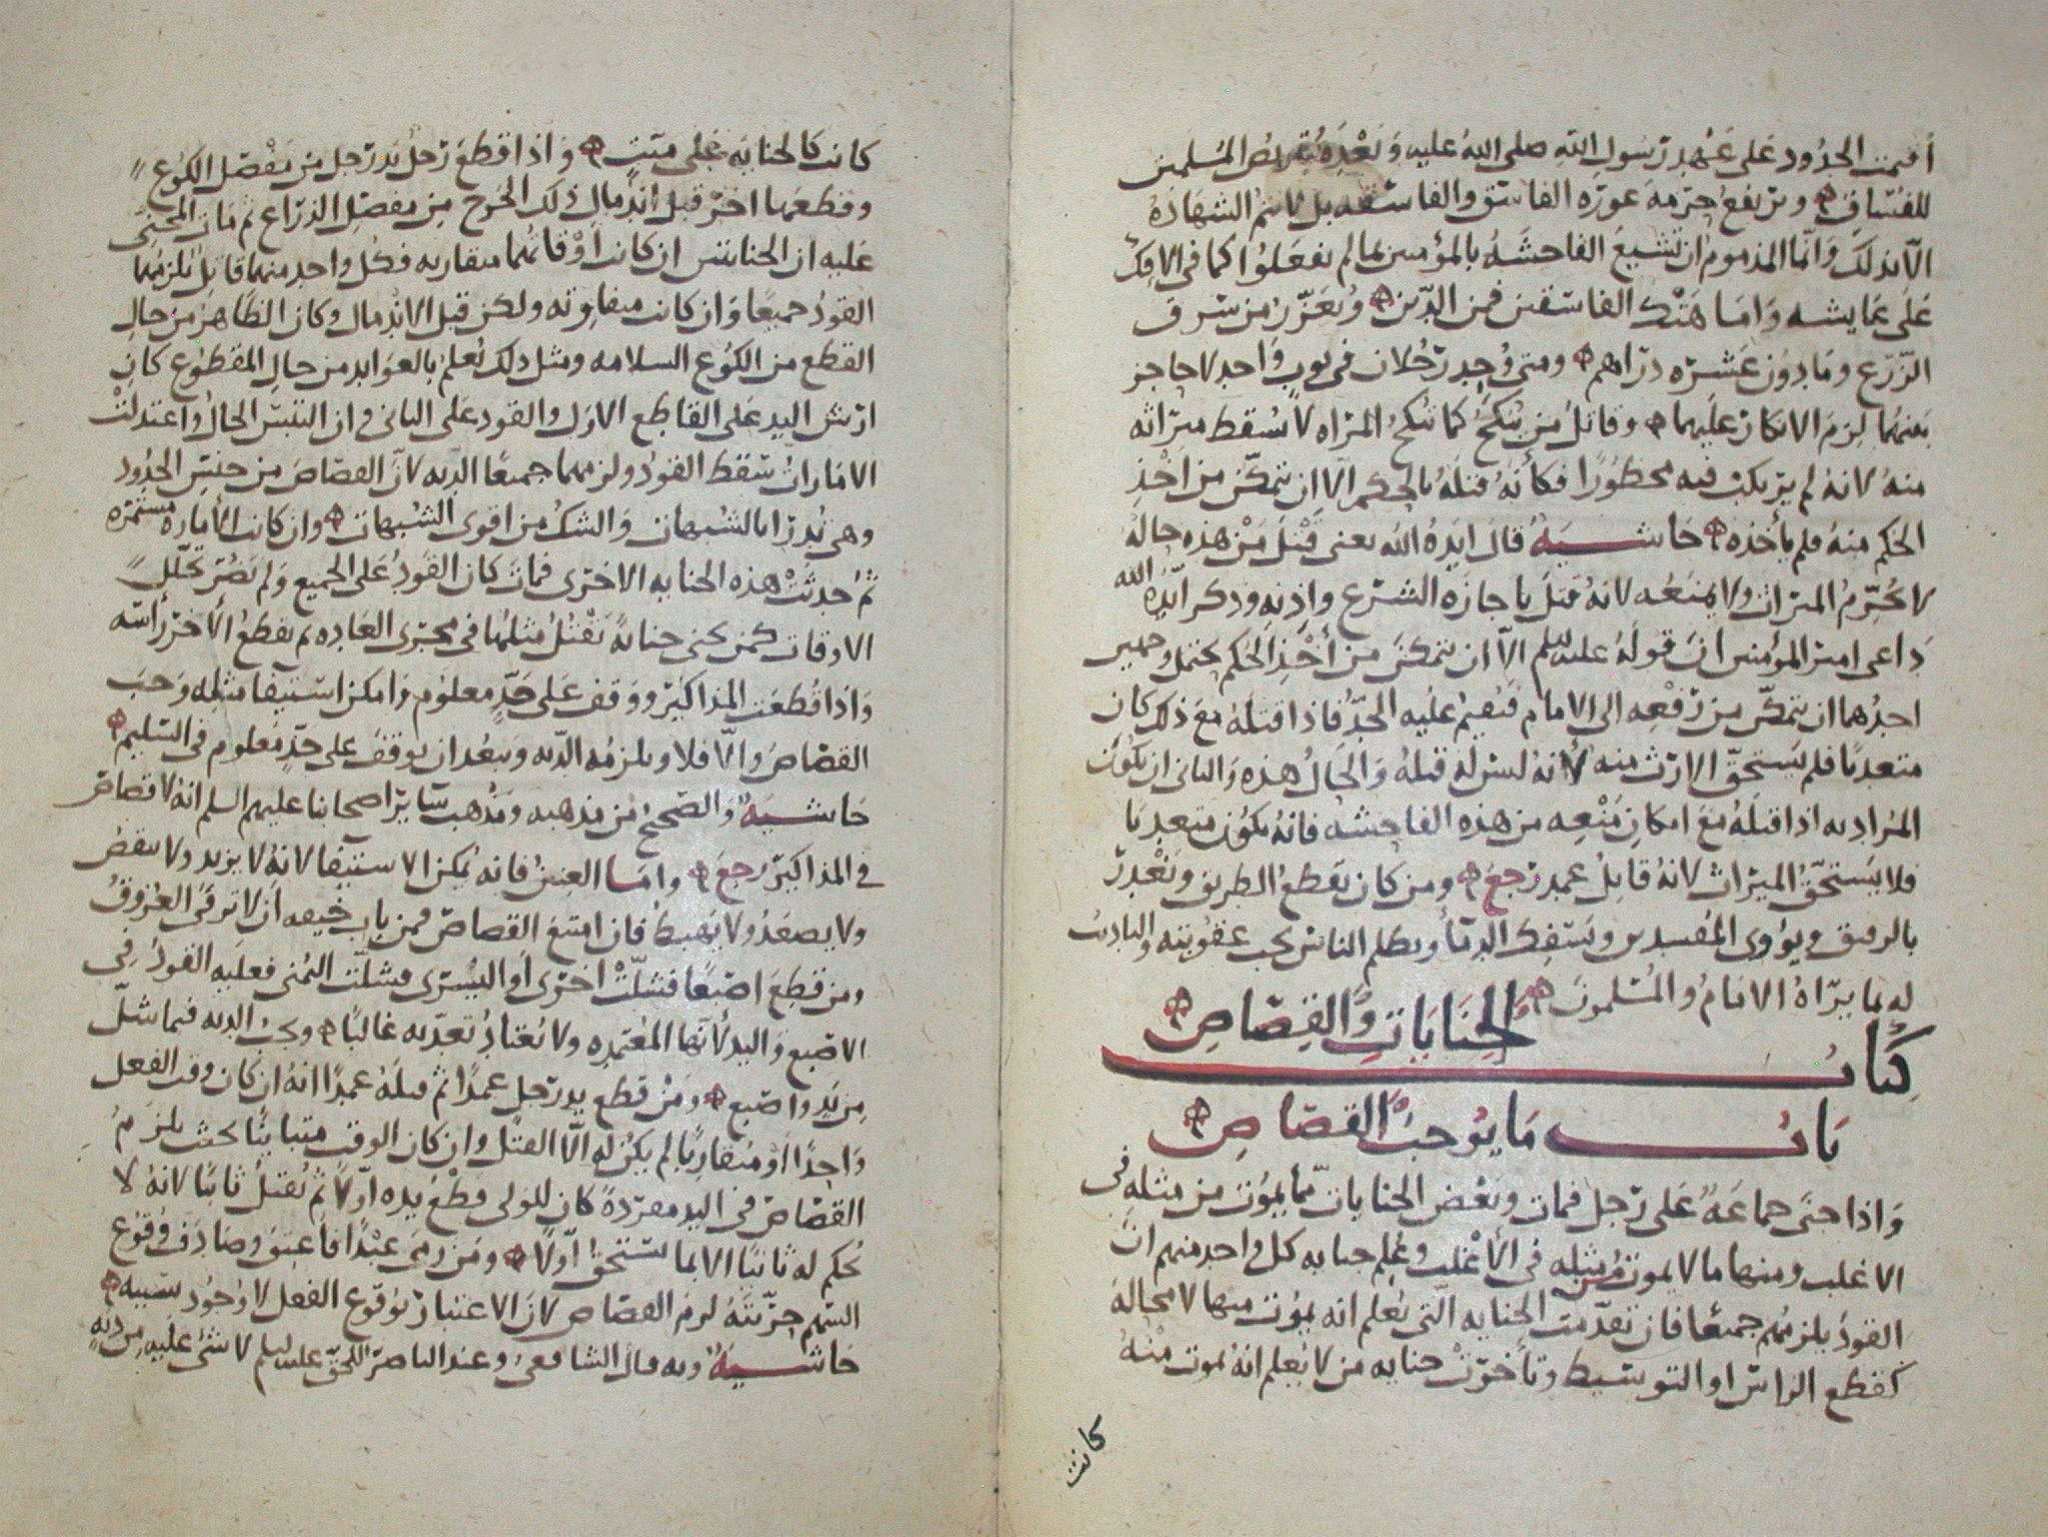 أقيمت الحدود على عهد رسول الله صلى الله عليه وبعده بقر بعض المسلمين
للفساق وترتفع حرمة عورة الفاسق والفاسقة بل لا تتم الشهادة
الا بذلك وانما المذموم ان تشيع الفاحشة بالمؤمنين بما لم يفعلوا كما في الافك
على عايشه واما هتك الفاسقين فمن الدين ويعزر من سرق
الزرع وما دون عشرة دراهم ومتى وجد رجلان في ثوب واحد لا حاجز
بينهما لزم الانكار عليهما وقاتل من ينكح كما تنكح المراه لا يسقط ميراثه
منه لانه لم يرتكب فيه محظورا فكأنه قتله بالحكم الا ان يتمكن من اخذ
الحكم منه فلم يأخذه حاشية قال ايده الله يعني قتل من هذه حاله
لا يحرم الميراث ولا يمنعه لانه قتل باجازة الشرع واذنه وذكر ايده الله
داعي امير المؤمنين ان قوله عليه السلم الا ان يتمكن من أخذ الحكم يحتمل وجهين
احدهما ان يتمكن من رفعه الى الامام فيقيم عليه الحد فاذا قتله مع ذلك كان
متعديا فلم يستحق الارث منه لأنه ليس له قتله والحال هذه والثاني ان يكون
المراد به اذا قتله مع امكان منعه من هذه الفاحشه فانه يكون متعديا
فلا يستحق الميراث لانه قاتل عمد رجع ومن كان يقطع الطريق ويغدر
بالرفيق ويؤوي المفسدين ويسفك الدماء ويظلم الناس يجب عقوبته والتاديب
له بما يراه الامام والمسلمون
كتاب الجنايات والقصاص
باب ما يوجب القصاص
واذا جنى جماعة على رجل فمات وبعض الجنايات مما يموت من مثله في
الاغلب ومنها ما لا يموت من مثله في الأغلب وعلم جنايه كل واحد منهم ان
القود يلزمهم جميعا فان تقدمت الجنايه التي يعلم انه يموت منها لا محالة
كقطع الراس او التوسيط وتأخرت جنايه من لا يعلم انه يموت منه
كانت
كانت كالجنايه على ميت واذا قطع رجل يد رجل من مفصل الكوع
وقطعها اخر قبل اندمال ذلك الجرح من مفصل الذراع ثم مات المجني
عليه ان الجنايتين ان كانت أوقاتهما متقاربه فكل واحد منهما قاتل يلزمهما
القود جميعا وان كانت متفاوته ولكن قبل الاندمال وكان الظاهر من حال
القطع من الكوع السلامه ومثل ذلك يعلم بالعوايد من حال المقطوع كان
ارش اليد على القاطع الاول والقود على الثاني وان التبس الحال واعتدلت
الامارات سقط القود ولزمهما جميعا الديه لان القصاص من جنس الحدود
وهي تدرا بالشبهات والشك من اقوى الشبهات وان كانت الأماره مستمره
ثم حدثت هذه الجنايه الاخرى فمات كان القود على الجميع ولم يضر تخلل
الاوقات كمن يجني جناية يقتل مثلها في مجرى العادة ثم يقطع الاخر رأسه
واذا قطعت المذاكير ووقف على حد معلوم وامكن استيفا مثله وجب
القصاص والا فلا ويلزمه الديه ويبعد ان يوقف على حد معلوم في التسليم
حاشية والصحيح من مذهبه ومذهب ساير اصحابنا عليهم السلم انه لا قصاص
في المذاكير رجع واما العين فانه يمكن الاستيفا لانه لا يزيد ولا ينقص
ولا يصعد ولا يهبط فان امتنع القصاص فمن باب خيفه ان لا ترقى العروق
ومن قطع اصبعا فشلت اخرى أو اليسرى فشلت اليمنى فعليه القود في
الاصبع واليد لأنها المعتمده ولا يعتاد تعديه غالبا ويجب الديه فيما شل
من يد واصبع ومن قطع يد رجل عمدا ثم قتله عمدا انه ان كان وقت الفعل
واحدا او متقاربا لم يكن له الا القتل وان كان الوقت متباينا بحيث يلزم
القصاص في اليد مفردة كان للولي قطع يده اولا ثم يقتل ثانيا لانه لا
يحكم له ثانيا الا بما يستحق أولا ومن رمى عبدا فاعتق وصادف وقوع
السهم حريته لزم القصاص لان الاعتبار بوقوع الفعل لا وجود سببه
حاشية وبه قال الشافعي وعند الناصر للحق عليه السلم لا شيء عليه من دية